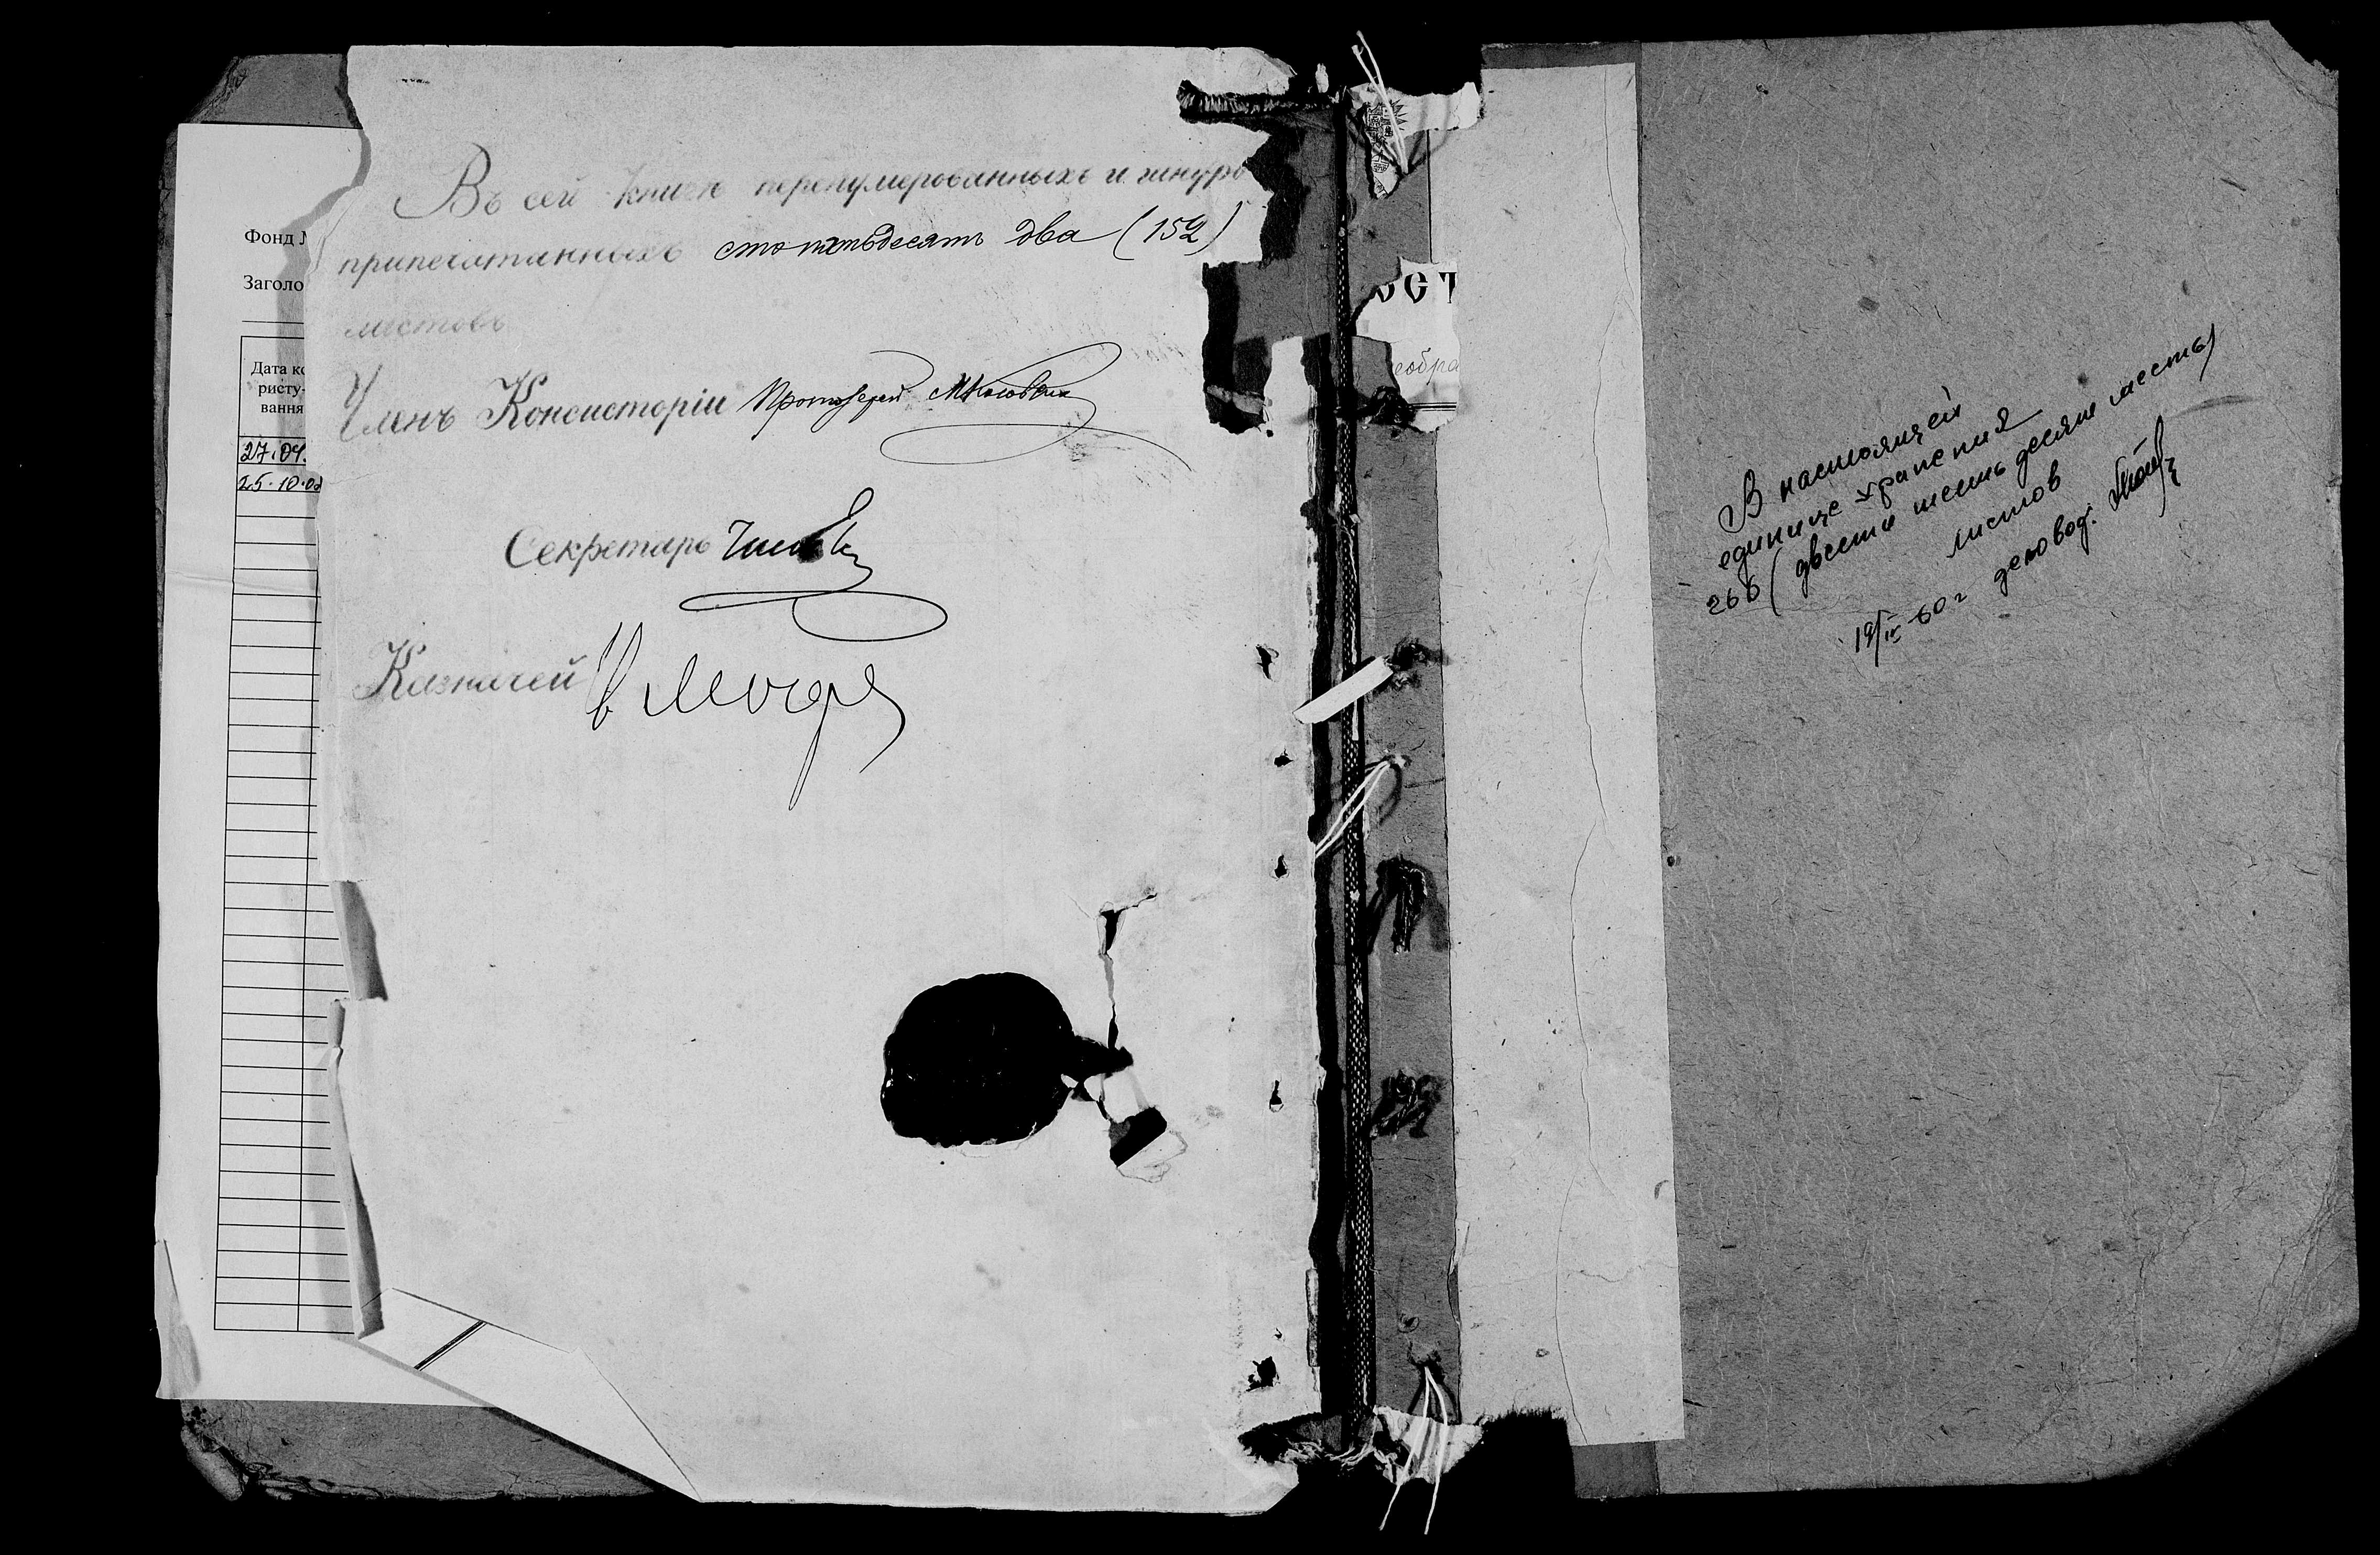 Фонд
Заголо
Дата ко
ристу-
вання
27.04.
25.10.02
Въ сей книгѣ перенумерованныхъ и шнуро
припечатанныхъ сто пятьдесятъ два (152)
листовъ
Членъ Консисторіи Протоіерей
Секретарь
Казначей
ОСТ
собра
В настоящей
единице хранения
266 (двести шестьдесят шесть)
листов
19/IV-60 г деловод.